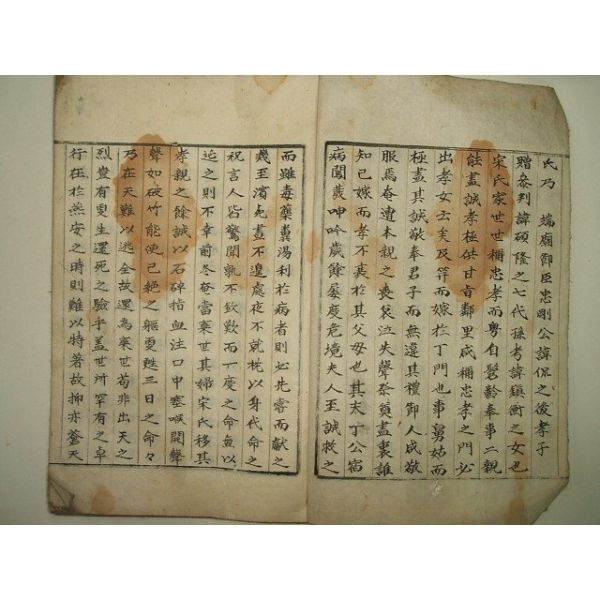 氏乃 端廟節臣忠剛公諱侃之後孝子
贈參判諱碩隆之七代孫考諱鎭衡之女也
宋氏家世世稱忠孝而粤自髫齡奉事二親
能盡誠孝極供甘旨鄰里咸稱忠孝之門必
出孝女云矣及笄而嫁於丁門也事舅姑而
極盡其誠敬奉君子而無違其禮鄉人咸敬
服焉奄遭本親之喪哀泣失聲祭奠盡裏誰
知已嫁而孝不衰於其父母也其夫丁公宿
病闖歲呻吟歲餘屢度危境夫人至誠救之
而雖毒藥糞湯利於病者則必先嘗而獻之
幾至濱死晝不遑處夜不就枕以身代命之
祝言人皆驚聞孰不欽歎而一度之命無以
延之則不幸前冬奄當棄世其婦宋氏移其
孝親之餘誠以石碎指血注口中塞喉開聲
聲如破竹能使已絶之軀更甦三日之命々
乃在天難以逃全故還爲棄世苟非出天之
烈豈有更生還死之驗乎盖世所罕有之卓
行在於燕安之時則難以特著故抑亦蒼天